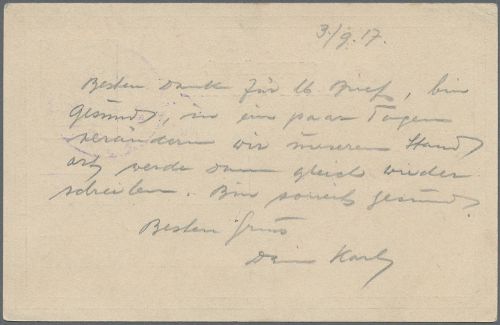 3./9. 17.
Besten Dank für lb Brief, bin
gesund, in ein paar Tagen
verändern wir unseren Stand
ort, werde dann gleich wieder
schreiben. Bin soweit gesund.
Besten Gruss
Dein Karl